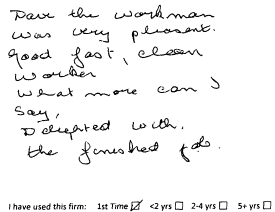 Dave the workman
was very pleasent.
Good fast, clean
worker
What more can I
Say,
Delighted with.
the finished job.
I have used this firm: 1st Time ☑ <2 yrs ☐ 2-4 yrs ☐ 5+ yrs ☐